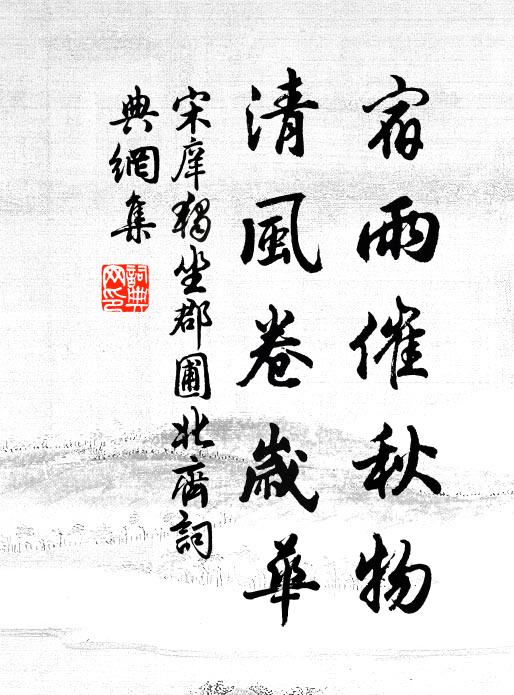 宿雨催秋物
清風卷歲華
宋庠獨坐郡圃北齋詞
典網集
詞典
网印